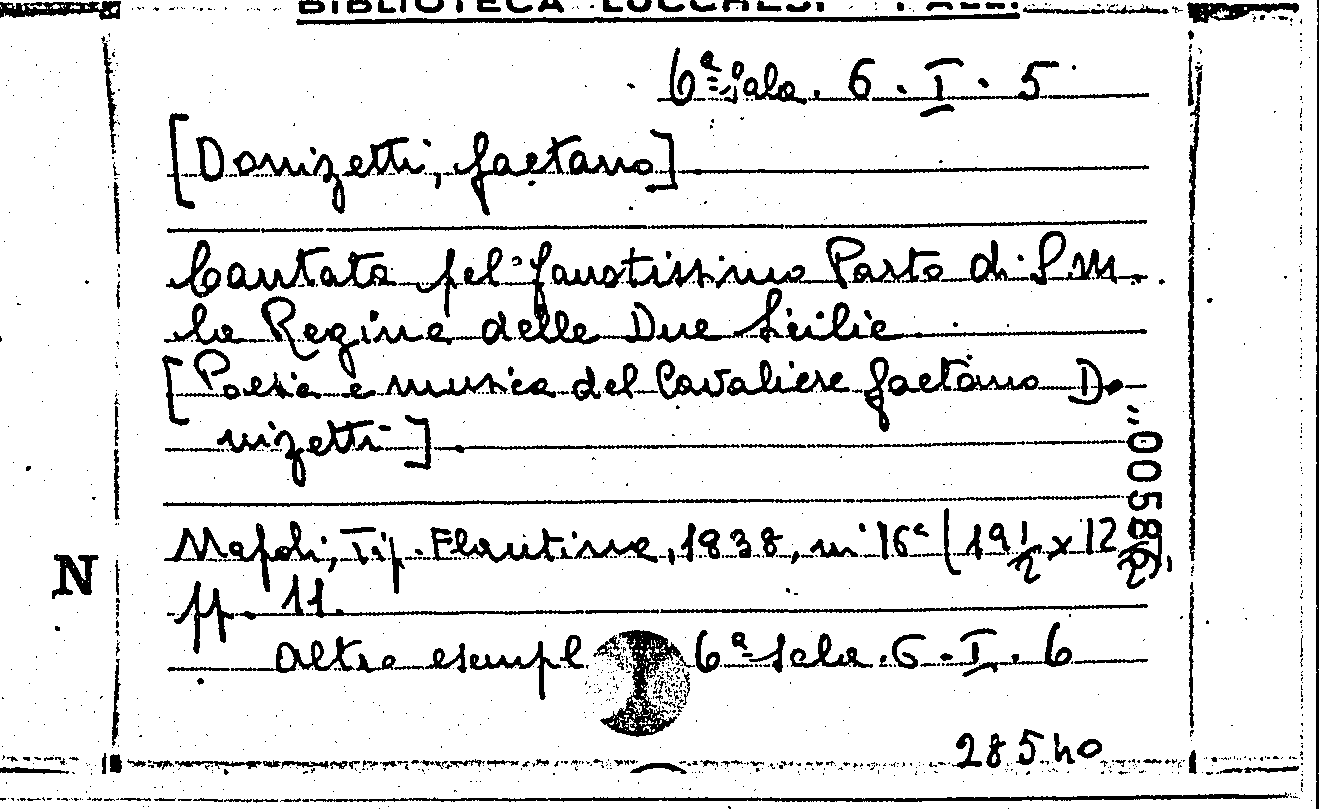 BIBLIOTECA LUCCHESI - PALLI
6ª Sala. 6. I. 5
[Donizetti, Gaetano]
Cantata pel faustissimo Parto di S. M.
la Regina delle Due Sicilie.
[Poesia e musica del Cavaliere Gaetano Do-
nizetti].
Napoli, Tip. Flautina, 1838, in 16° (19 1/2 x 12 1/2),
pp. 11.
Altro esempl 6ª Sala. 6. I. 6
28540
N